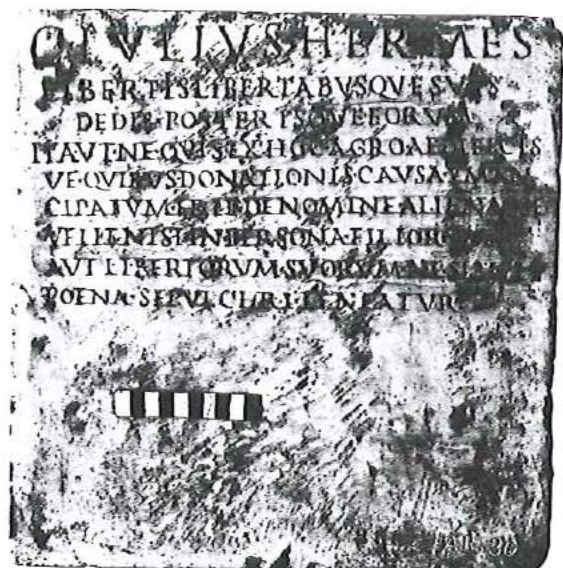 IVLIVS HERMES
LIBERTIS LIBERTABVSQVE SVIS
DEDIT·POSTERISQVE EORVM
ITA VT·NE·QVIS EX HOC AGRO AEDIFICIS
VE·QVIBVS DONATIONIS CAVSA
CIPATVM·ERIT·DE NOMINE ALIENARE
VELLE·NISI·IN PERSONA·FILIORVM
AVT LIBERTORVM·SVORVM
POENA·SEPVLCHRI·TENEATVR
36